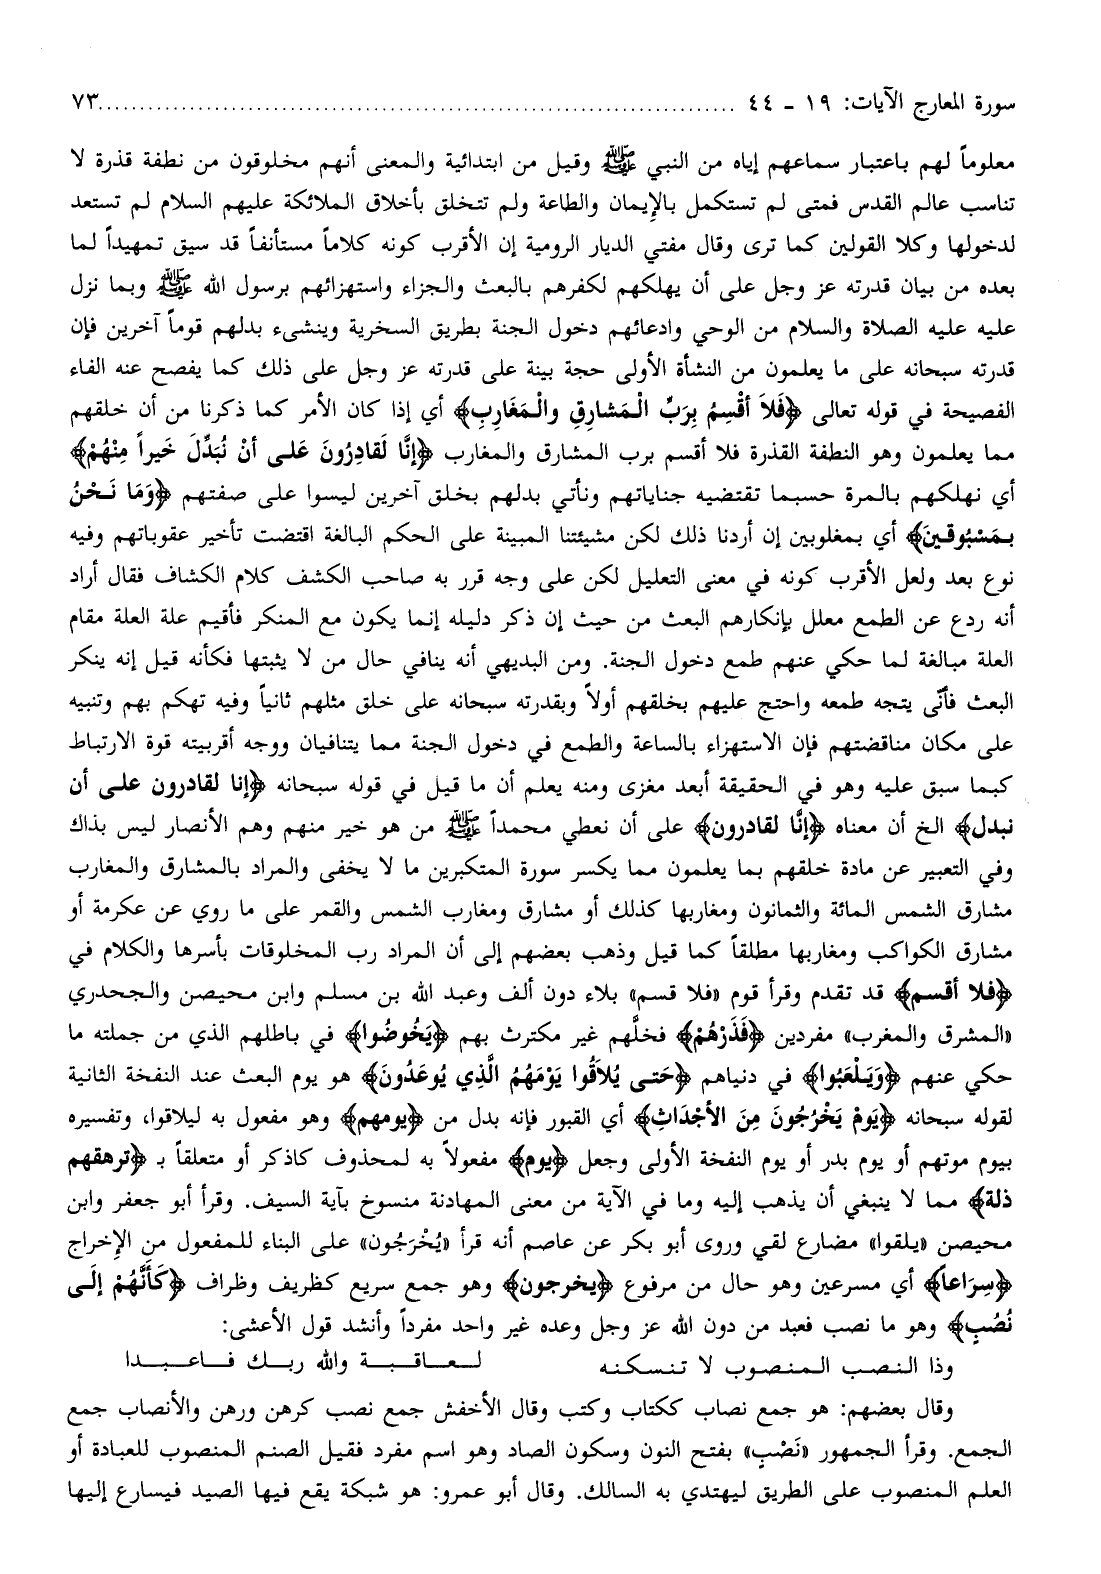 سورة المعارج الآيات: ١٩ - ٤٤ ........................................................................... ٧٣
معلوماً لهم باعتبار سماعهم إياه من النبي ﷺ وقيل من ابتدائية والمعنى أنهم مخلوقون من نطفة قذرة لا
تناسب عالم القدس فمتى لم تستكمل بالإيمان والطاعة ولم تتخلق بأخلاق الملائكة عليهم السلام لم تستعد
لدخولها وكلا القولين كما ترى وقال مفتي الديار الرومية إن الأقرب كونه كلاماً مستأنفاً قد سيق تمهيداً لما
بعده من بيان قدرته عز وجل على أن يهلكهم لكفرهم بالبعث والجزاء واستهزائهم برسول الله ﷺ وبما نزل
عليه عليه الصلاة والسلام من الوحي وادعائهم دخول الجنة بطريق السخرية وينشىء بدلهم قوماً آخرين فإن
قدرته سبحانه على ما يعلمون من النشأة الأولى حجة بينة على قدرته عز وجل على ذلك كما يفصح عنه الفاء
الفصيحة في قوله تعالى ﴿فَلاَ أقْسِمُ بِرَبِّ الْمَشارِقِ والْمَغَارِبِ﴾ أي إذا كان الأمر كما ذكرنا من أن خلقهم
مما يعلمون وهو النطفة القذرة فلا أقسم برب المشارق والمغارب ﴿إنَّا لَقادِرُونَ عَلى أنْ نُبَدِّلَ خَيراً مِنْهُمْ﴾
أي نهلكهم بالمرة حسبما تقتضيه جناياتهم ونأتي بدلهم بخلق آخرين ليسوا على صفتهم ﴿وَمَا نَحْنُ
بِمَسْبُوقينَ﴾ أي بمغلوبين إن أردنا ذلك لكن مشيئتنا المبينة على الحكم البالغة اقتضت تأخير عقوباتهم وفيه
نوع بعد ولعل الأقرب كونه في معنى التعليل لكن على وجه قرر به صاحب الكشف كلام الكشاف فقال أراد
أنه ردع عن الطمع معلل بإنكارهم البعث من حيث إن ذكر دليله إنما يكون مع المنكر فأقيم علة العلة مقام
العلة مبالغة لما حكي عنهم طمع دخول الجنة. ومن البديهي أنه ينافي حال من لا يثبتها فكأنه قيل إنه ينكر
البعث فأنّى يتجه طمعه واحتج عليهم بخلقهم أولاً وبقدرته سبحانه على خلق مثلهم ثانياً وفيه تهكم بهم وتنبيه
على مكان مناقضتهم فإن الاستهزاء بالساعة والطمع في دخول الجنة مما يتنافيان ووجه أقربيته قوة الارتباط
كبما سبق عليه وهو في الحقيقة أبعد مغزى ومنه يعلم أن ما قيل في قوله سبحانه ﴿إنا لقادرون على أن
نبدل﴾ الخ أن معناه ﴿إنَّا لقادرون﴾ على أن نعطي محمداً ﷺ من هو خير منهم وهم الأنصار ليس بذاك
وفي التعبير عن مادة خلقهم بما يعلمون مما يكسر سورة المتكبرين ما لا يخفى والمراد بالمشارق والمغارب
مشارق الشمس المائة والثمانون ومغاربها كذلك أو مشارق ومغارب الشمس والقمر على ما روي عن عكرمة أو
مشارق الكواكب ومغاربها مطلقاً كما قيل وذهب بعضهم إلى أن المراد رب المخلوقات بأسرها والكلام في
﴿فلا أقسم﴾ قد تقدم وقرأ قوم «فلا قسم» بلاء دون ألف وعبد الله بن مسلم وابن محيصن والجحدري
«المشرق والمغرب» مفردين ﴿فَذَرْهُمْ﴾ فخلَّهم غير مكترث بهم ﴿يَخُوضُوا﴾ في باطلهم الذي من جملته ما
حكي عنهم ﴿وَيَلْعَبُوا﴾ في دنياهم ﴿حَتى يُلاَقُوا يَوْمَهُمُ الَّذِي يُوعَدُونَ﴾ هو يوم البعث عند النفخة الثانية
لقوله سبحانه ﴿يَومْ يَخْرُجُونَ مِنَ الأجْداثِ﴾ أي القبور فإنه بدل من ﴿يومهم﴾ وهو مفعول به ليلاقوا، وتفسيره
بيوم موتهم أو يوم بدر أو يوم النفخة الأولى وجعل ﴿يوم﴾ مفعولاً به لمحذوف كاذكر أو متعلقاً بـ ﴿ترهقهم
ذلة﴾ مما لا ينبغي أن يذهب إليه وما في الآية من معنى المهادنة منسوخ بآية السيف. وقرأ أبو جعفر وابن
محيصن «يلقوا» مضارع لقي وروى أبو بكر عن عاصم أنه قرأ «يُخْرَجُون» على البناء للمفعول من الإخراج
﴿سِرَاعاً﴾ أي مسرعين وهو حال من مرفوع ﴿يخرجون﴾ وهو جمع سريع كظريف وظراف ﴿كَأَنَّهُمْ إلَى
نُصُبٍ﴾ وهو ما نصب فعبد من دون الله عز وجل وعده غير واحد مفرداً وأنشد قول الأعشى:
وذا النصب المنصوب لا تنسكنه لعاقبة والله ربك فاعبدا
وقال بعضهم: هو جمع نصاب ككتاب وكتب وقال الأخفش جمع نصب كرهن ورهن والأنصاب جمع
الجمع. وقرأ الجمهور «نَصْبٍ» بفتح النون وسكون الصاد وهو اسم مفرد فقيل الصنم المنصوب للعبادة أو
العلم المنصوب على الطريق ليهتدي به السالك. وقال أبو عمرو: هو شبكة يقع فيها الصيد فيسارع إليها